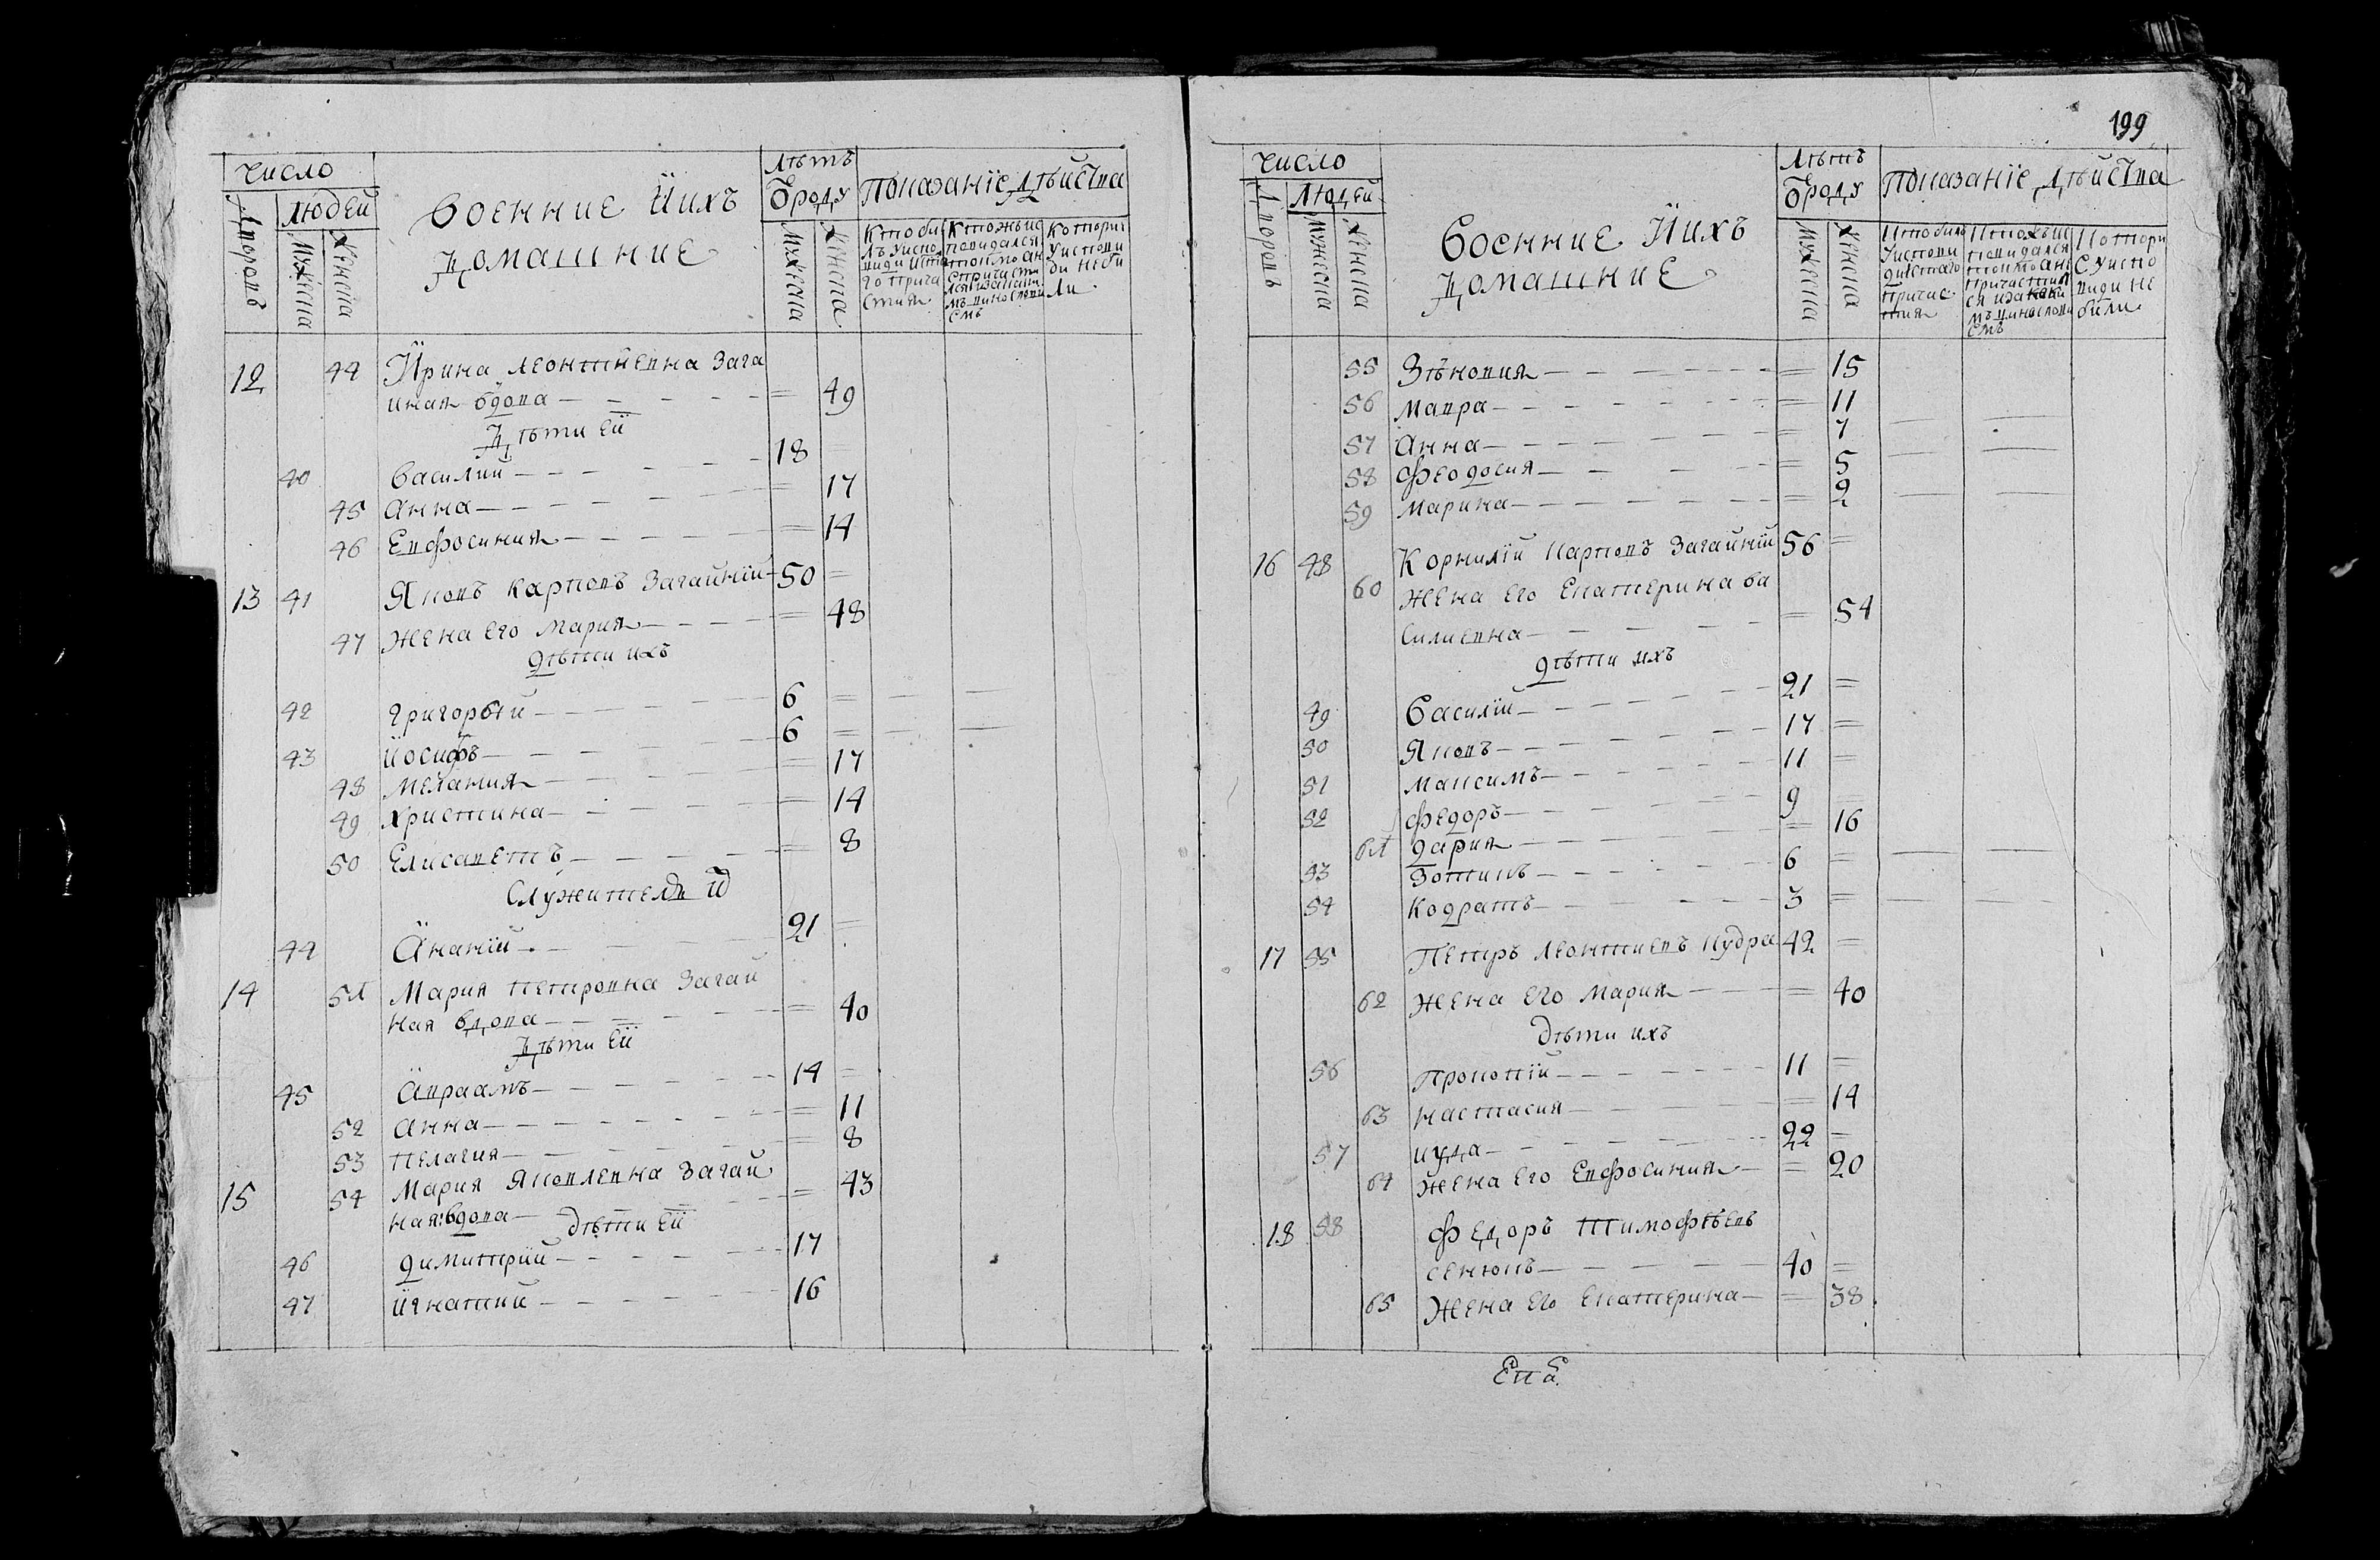 199
Число
Людей
Дворовъ
Мужеска
Женска
Военние Иихъ
Домашние
Лѣтъ
Ѿроду
Мужеска
Женска
Показаніе Дѣйства
Кто били Уиспо
види ист
го прича
стия
Ктожъис
поведался
токмо а н
Спричасти
лся изакаки
мъ винословия
смъ
Котори
Уисповн
ди неби
ли
12 44 Ирина Леонтиевна Зага
иная вдова — = 49
Дѣти еи
40 Василии — 18 =
45 Анна — = 17
46 Евфосиния — = 14
13 41 Яковъ Карповъ Загайнїи 50 =
47 Жена его Мария — = 48
Дѣти ихъ
42 Григорѣи — 6 = — —
43 Иосифъ — 6 = — —
48 Мелания — = 17
49 Христина — = 14
50 Елисаветъ — = 8
Служител
44 Ананїи — 21 =
14 51 Мария Петровна Загаи
ная вдова — = 40
Дѣти еи
45 Авраамъ — 14 =
52 Анна — = 11
53 Пелагия — = 8
15 54 Мария Яковлевна Загаи
ная вдова — = 43
Дѣти еи
46 Димитрїи — 17
47 Игнатии — 16
Число
Людей
Дворовъ
Мужеска
Женска
Военние Иихъ
Домашние
Лѣтъ
Ѿроду
Мужеска
Женска
Показанїе Дѣйства
Кто билъ
Уиспови
ди истаго
причас
тия
Ктожъ ис
поведался
токмо а не
причастил
ся иза каки
мъ винослови
смъ
Котори
с Уиспо
види не
били
55 Зѣновия — = 15
56 Мавра — = 11
57 Анна — = 7 — —
58 Феодосия — = 5 — —
59 Марина — = 2 — —
16 48 Корнилїи Карповъ Загайнїи 56 =
60 Жена его Екатерина Ва
силиевна — = 54
Дѣти ихъ
49 Василїи — 21 =
50 Яковъ — 17 =
51 Максимъ — 11 =
52 Федоръ — 9 =
61 Дария — = 16
53 Зотикъ — 6 = — —
54 Кодратъ — 3 = — —
17 55 Петръ Леонтиевъ Кудра 42 =
62 Жена его Мария — = 40
Дѣти ихъ
56 Прокопїи — 11 =
63 Настасия — = 14
57 Иуда — 22 =
64 Жена его Евфосиния — = 20
18 58 Федоръ Тимофѣевъ
Сенюкъ — 40 =
65 Жена его Екатерина — = 38